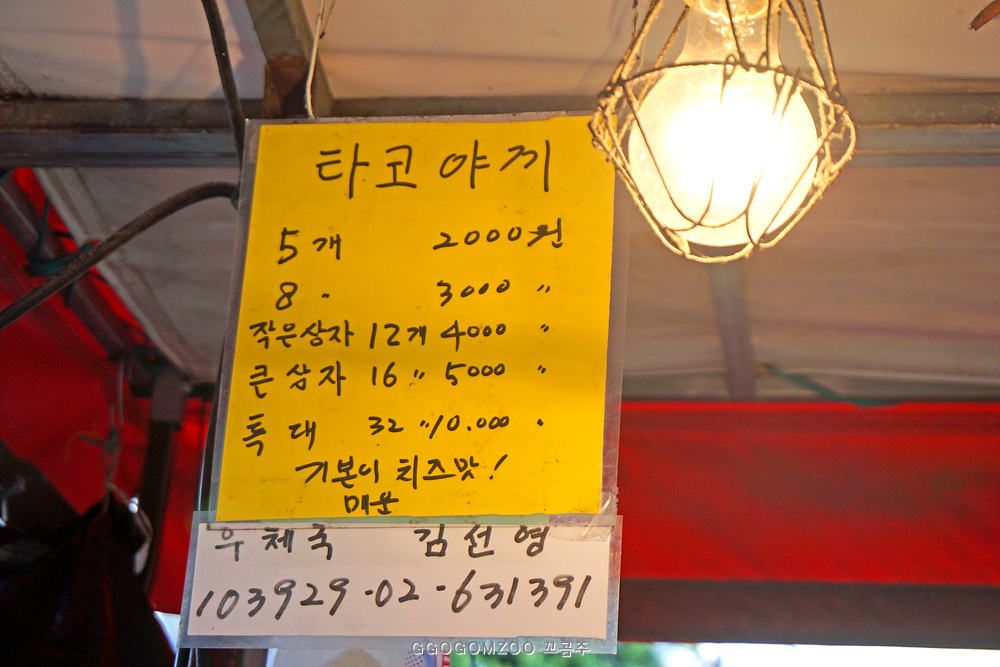 타코야끼
5개 2000원
8 〃 3000 〃
작은상자 12개 4000 〃
큰상자 16 〃 5000 〃
특대 32 〃 10.000 〃
기본이 치즈맛!
매운
우체국 김선영
103929-02-631391
GGOGOMZOO 꼬곰주